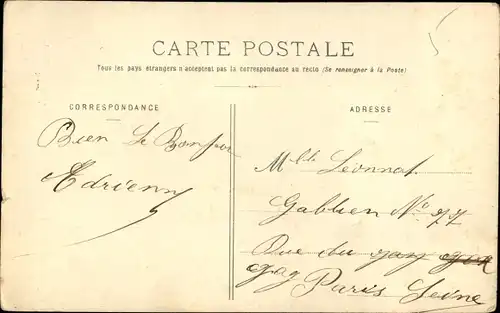 CARTE POSTALE
Tous les pays étrangers n'acceptent pas la correspondance au recto (Se renseigner à la Poste)
CORRESPONDANCE
ADRESSE
Bien Le Bonjour
Adrienn
Mlle Léonnat
N° 27
Rue du
Paris Seine